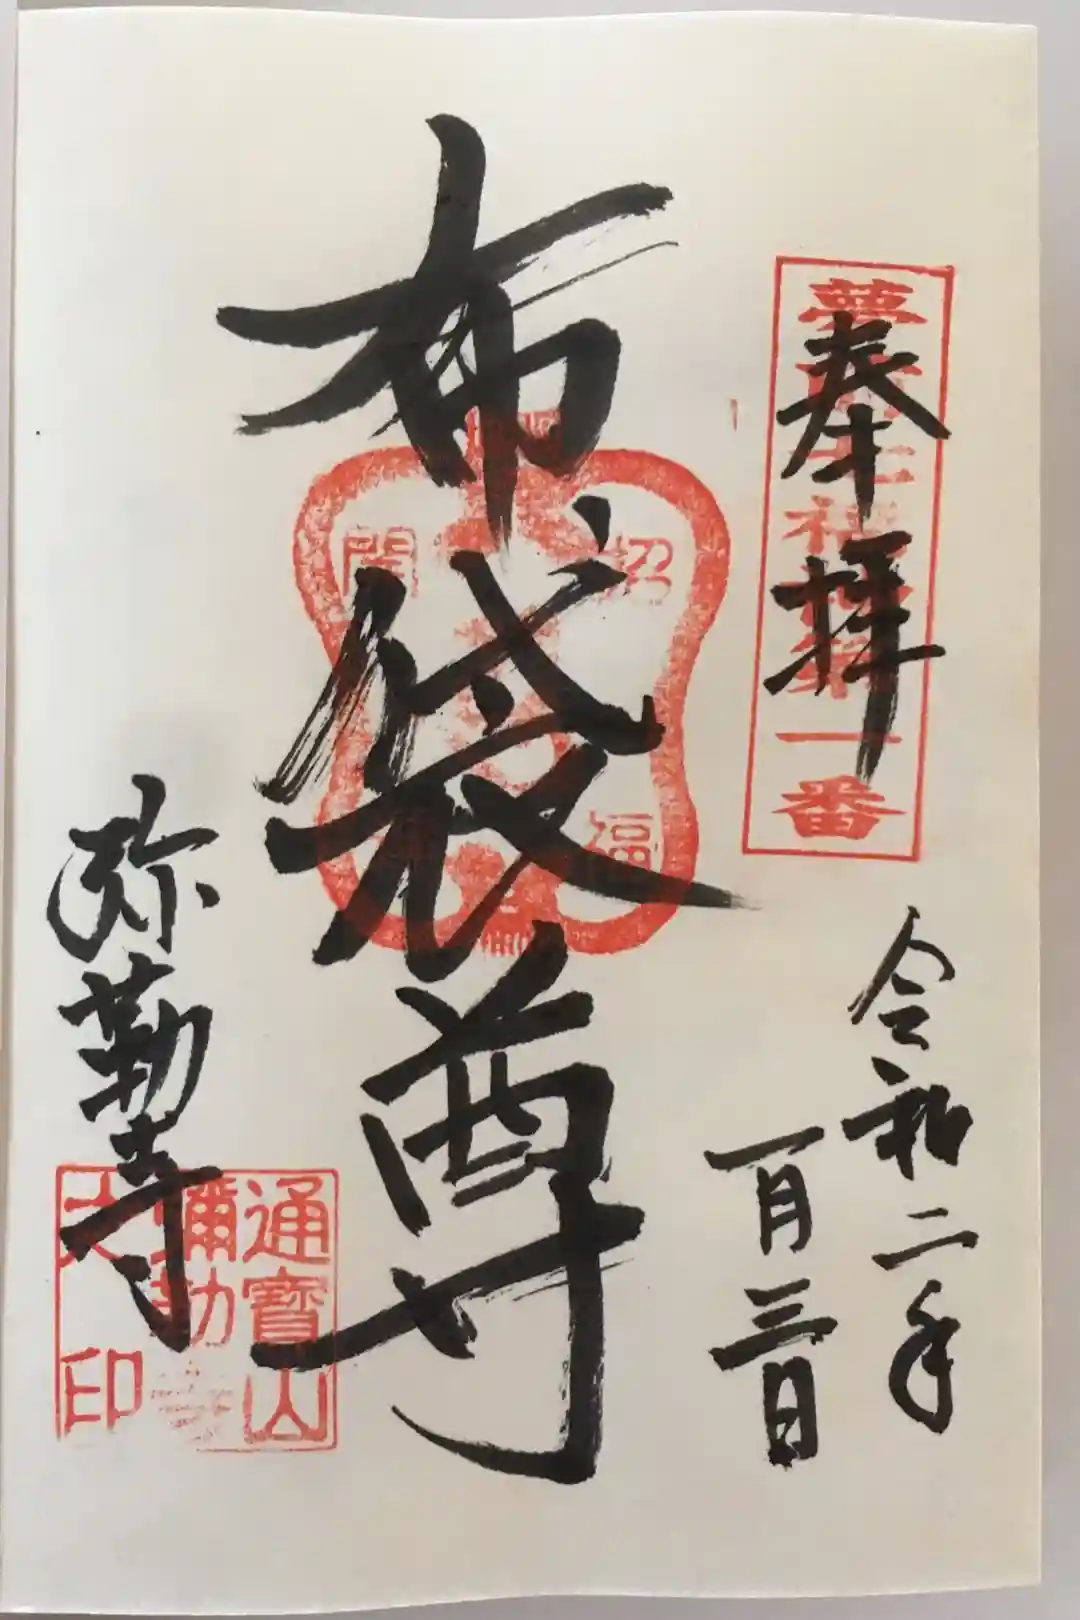 奉拝
七福
第一番
令和二年
一月三日
布袋尊
招福
開
弥勒寺
通寶山
彌勒
印